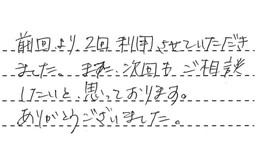 前回より2回利用させていただき
ました。また、次回もご相談
したいと思っております。
ありがとうございました。